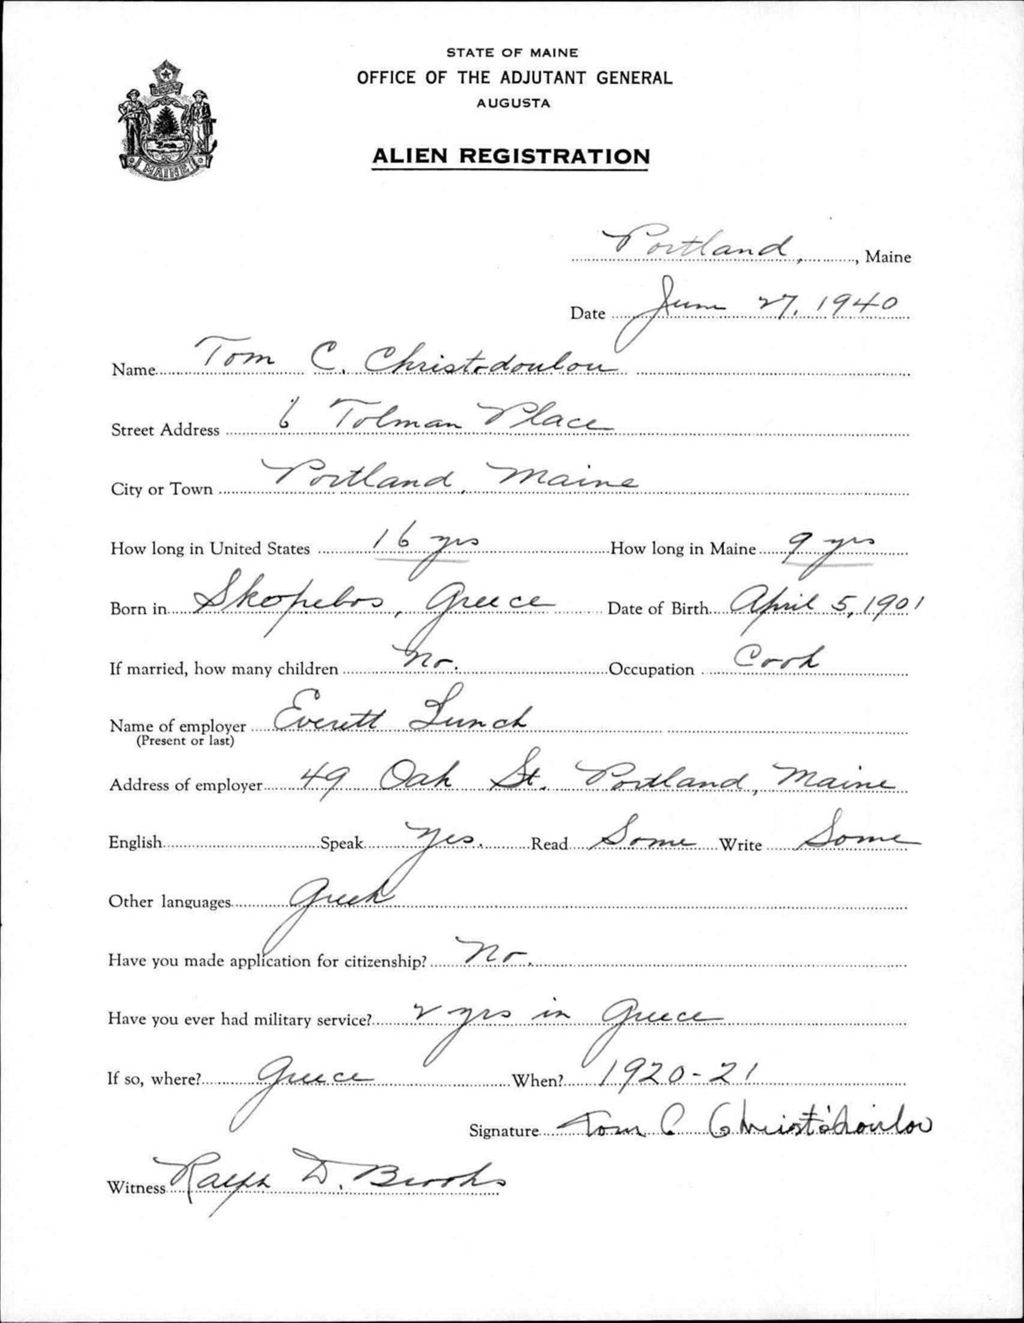 STATE OF MAINE
OFFICE OF THE ADJUTANT GENERAL
AUGUSTA
ALIEN REGISTRATION
MAINE
Portland, , Maine
Date June 27, 1940
Name Tom C. Christodoulou
Street Address 6 Tolman Place
City or Town Portland, Maine
How long in United States 16 yrs How long in Maine 9 yrs
Born in Skopelos, Greece Date of Birth April 5, 1901
If married, how many children No. Occupation Cook
Name of employer Everett Lunch
(Present or last)
Address of employer 49 Oak St. Portland, Maine
English Speak Yes. Read Some Write Some
Other languages Greek
Have you made application for citizenship? No.
Have you ever had military service? 2 yrs in Greece
If so, where? Greece When? 1920-21
Signature Tom C Christodoulou
Witness Ralph D. Brooks